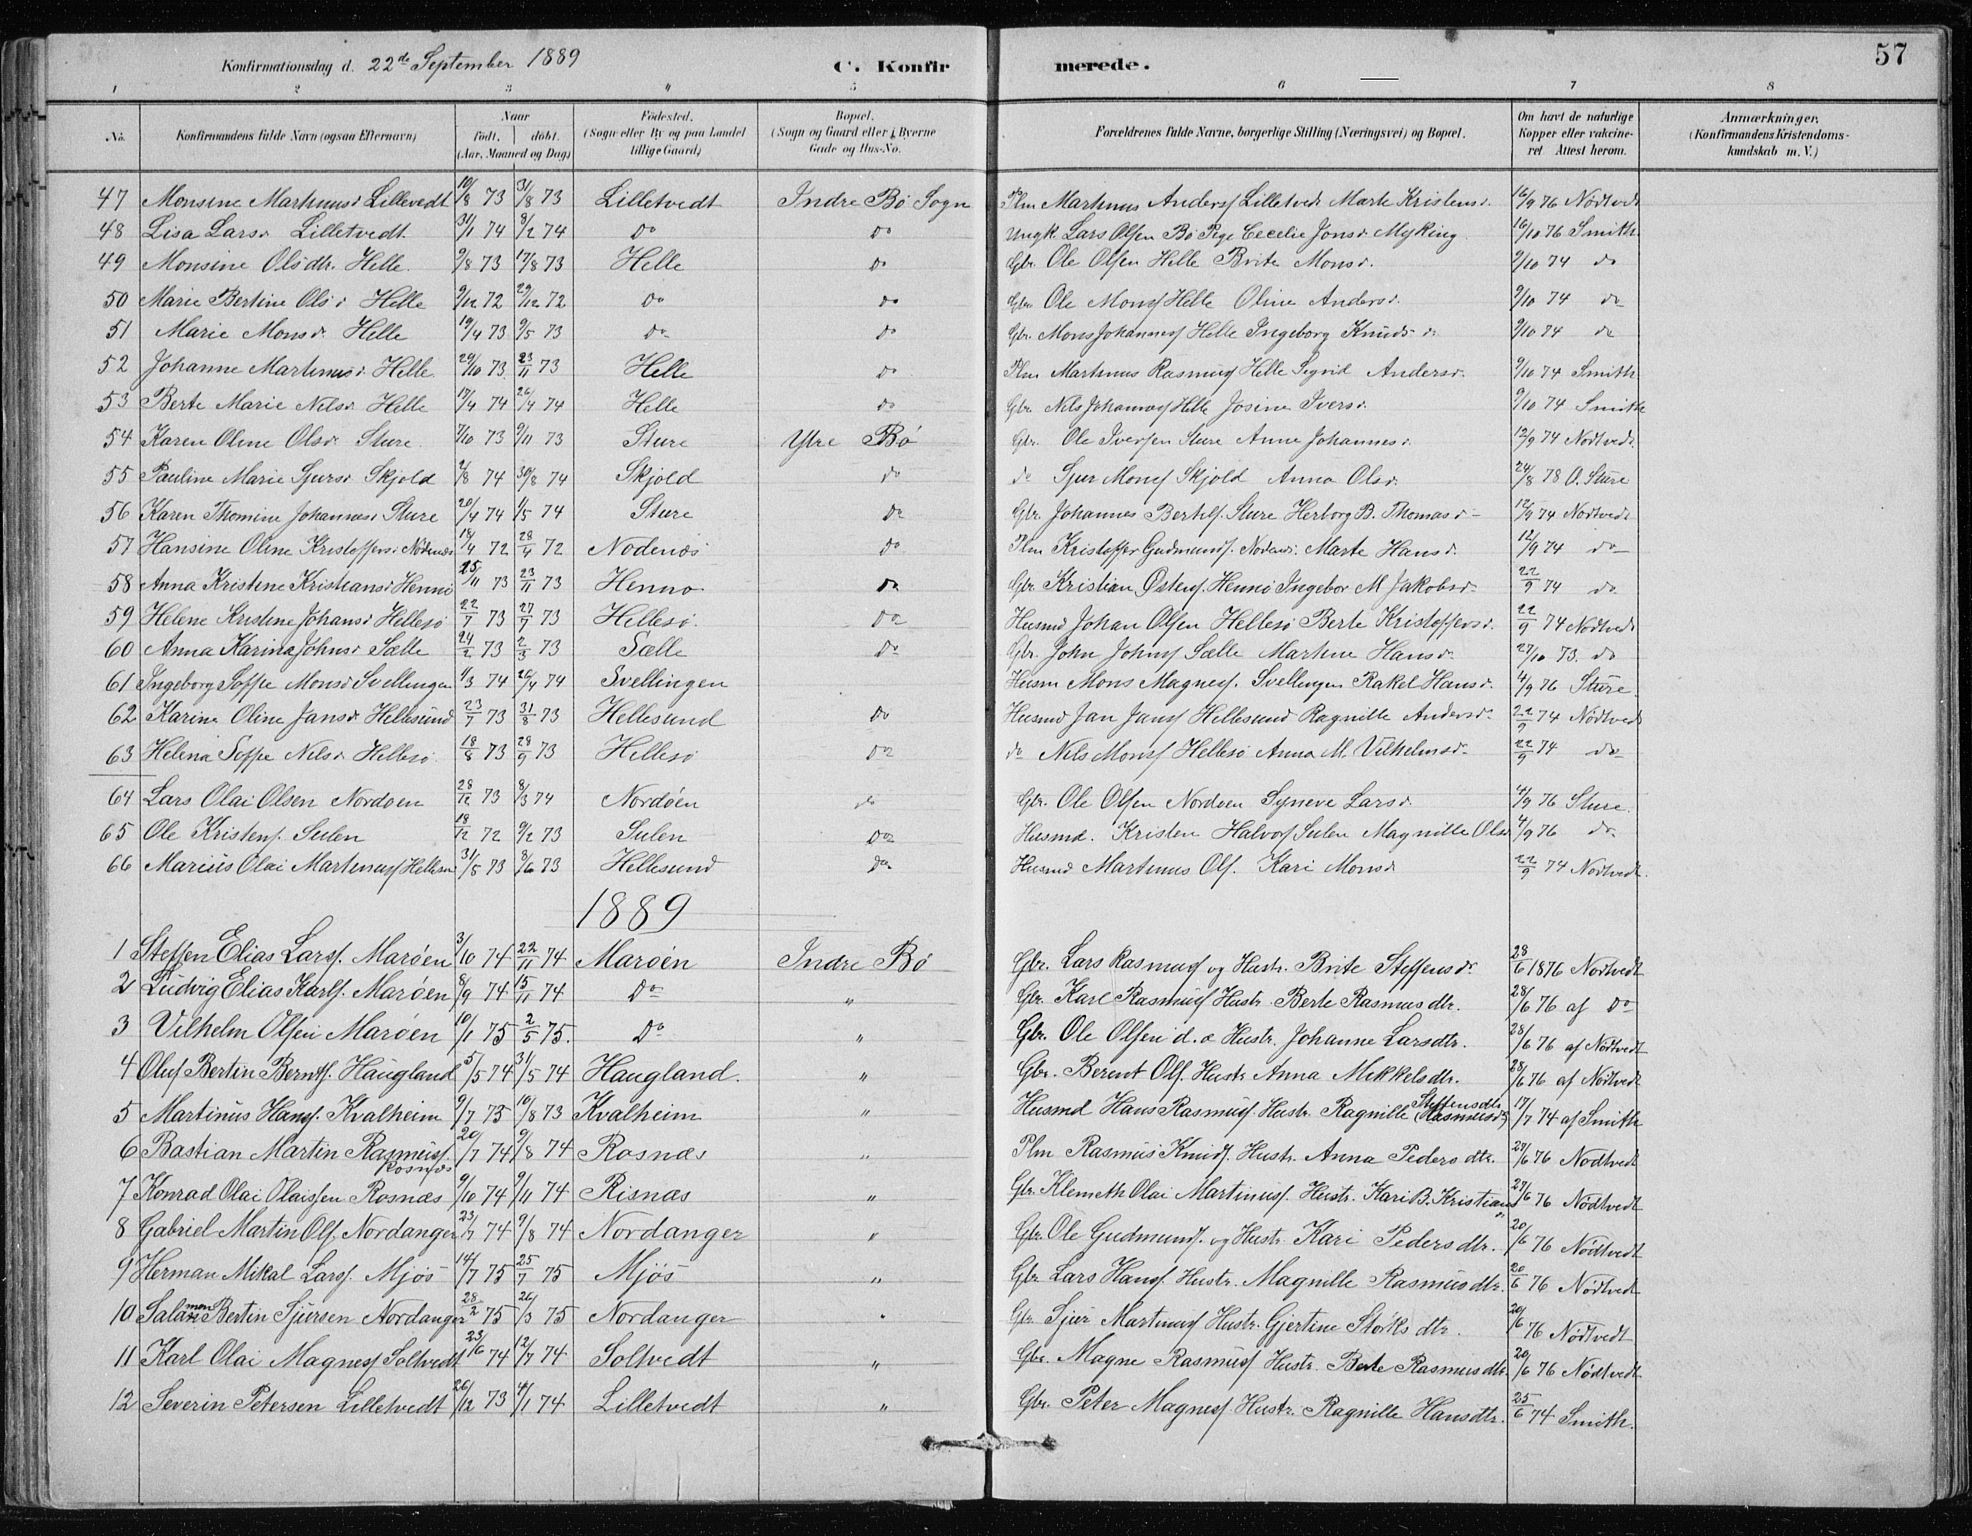 57
Konfirmationsdag d. 22de September 1889 C. Konfirmerede.
1 2 3 4 5 6 7 8
No. Konfirmandens fulde Navn (ogsaa Efternavn) Naar født, døbt. (Aar, Maaned og Dag) Fødested. (Sogn eller By og paa Landet tillige Gaard) Bopæl. (Sogn og Gaard eller i Byerne Gade og Hus-No. Forældrenes fulde Navne, borgerlige Stilling (Næringsvei) og Bopæl. Om havt de naturlige Kopper eller vakcineret Attest herom. Anmærkninger. (Konfirmandens Kristendomskundskab m. V.)
47 Monsine Martinusd. Lillevedt 10/8 73 31/8 73 Lilletvedt Indre Bø Sogn Plm Martinus Anders Lilletvedt Marte Kristensd. 16/9 76 Nødtvedt
48 Lisa Larsd Lilletvedt 31/1 74 8/2 74 do do Ungk. Lars Olsen Bø Pige Cecelie Jonsd Myking 16/10 76 Smith
49 Monsine Olsdtr. Helle. 9/8 73 17/8 73 Helle do Gbr. Ole Olsen Helle Brite Monsd. 9/10 74 do
50 Marie Bertine Olsd Helle 9/12 72 29/12 72 do do Gbr Ole Mons Helle Oline Andersd. 9/10 74 do
51 Marie Monsd. Helle 19/4 73 9/5 73 do do Gbr. Mons Johannes Helle Ingeborg Knudsd 9/10 74 do
52 Johanne Martinusd. Helle 29/10 73 23/11 73 Helle do Plm Martinus Rasmus Helle Sigrid Andersd. 9/10 74 Smith
53 Berte Marie Nilsd Helle 17/4 74 26/4 74 Helle do Gbr. Nils Johannes Helle Josine Iversd 9/10 74 Smith
54 Karen Oline Olsd. Sture 7/10 73 9/11 73 Sture Ytre Bø Gbr. Ole Iversen Sture Anne Johannesd. 12/9 74 Nodtvedt
55 Pauline Marie Sjursd Skjold 2/8 74 30/8 74 Skjold do do Sjur Mons Skjold Anna Olsd. 24/8 78 O. Sture
56 Karen Thomine Johannesd Sture 20/4 74 1/5 74 Sture do Gbr. Johannes Bertels. Sture Herborg B. Thomasd 12/9 74 Nodtvedt
57 Hansine Oline Kristoffersd Nødenæs 14/4 72 28/4 72 Nodenæs do Plm Kristoffer Gudmunds. Noden. Marte Hansd. 12/9 74 do
58 Anna Kristine Kristiansd Hennø 15/11 73 23/11 73 Henno do Gbr. Kristian Østens. Hennø Ingebor M Jakobsd. 22/9 74 do
59 Helene Kristine Johansd Hellesø 22/7 73 27/7 73 Hellesø. do Husmd Johan Olsen Hellesø Berte Kristoffersd. 22/9 74 Nodtvedt
60 Anna Karina Johnsd Sælle 24/2 73 2/3 73 Sælle do Gbr. John Johns Sælle Martine Hansd. 27/10 73. do
61 Ingeborg Soffie Monsd Svellingen 1/3 74 26/4 74 Svellingen Husm Mons Magnes. Svellingen Rakel Hansd. 4/9 76 Sture.
62 Karine Oline Jansd Hellesund 23/7 73 31/8 73 Hellesund do Husmd Jan Jans Hellesund Ragnille Andersd. 22/9 74 Nødtvedt
63 Helena Soffie Nilsd. Hellesø 18/8 73 28/9 73 Hellesø do do Nils Mons Hellesø Anna M. Vilhelmsd. 22/9 74 do
64 Lars Olai Olsen Nordøen 28/12 73 8/3 74 Nordøen do Gbr. Ole Olsen Nordøen Syneve Larsd. 4/9 76 Sture.
65 Ole Kristens. Sulen 18/12 72 9/2 73 Sulen do Husmd. Kristen Halvos Sulen Magnille Olsd 4/9 76 do
66 Marius Olai Martinus Hellesun 31/5 73 8/6 73 Hellesund do Husmd Martinus Ols. Kari Monsd 22/9 74 Nodtvedt.
1889
1 Steffen Elias Lars. Marøen 3/10 74 22/11 74 Marøen Indre Bø Gbr. Lars Rasmus og Hustr. Brite Steffensd. 28/6 1876 Nodtvedt
2 Ludvig Elias Karls. Marøen 8/9 74 15/11 74 Do " Gbr. Karl Rasmus Hustr. Berte Rasmusdtr. 28/6 76 af Do
3 Vilhelm Olsen Marøen 10/1 75 2/5 75. Do " Gbr. Ole Olsen d. æ Hustr. Johanne Larsdtr. 28/6 76 af Nødtvedt
4 Oluf Bertin Bernts. Haugland 5/5 74 31/5 74 Haugland. " Gbr. Berent Ols. Hustr Anna Mikkelsdtr. 28/6 76 af Nødtvedt
5 Martinus Hans. Kvalheim 9/7 73 10/8 73 Kvalheim " Husmd Hans Rasmus Hustr. Ragnille Steffensdtr (Rasmusd) 17/7 74 af Smith
6 Bastian Martin Rasmus. Rosnæs 20/7 74 9/8 74 Rosnæs " Plm Rasmus Knuds. Hustr. Anna Pedersdtr. 27/6 76 Nodtvedt
7 Konrad Olai Olaissen Rosnæs 9/10 74 9/11 74 Risnæs " Gbr. Klemeth Olai Martinus. Hustr. Kari B. Kristiansd 27/6 76 Nødtvedt
8 Gabriel Martin Ols. Nordanger 23/7 74 9/8 74 Nordanger " Gbr. Ole Gudmunds. og Hustr. Kari Pedersdtr. 20/6 76 Nødtvedt
9 Herman Mikal Lars. Mjøs 14/7 75 25/7 75 Mjøs " Gbr Lars Hans Hustr. Magnille Rasmusdtr. 20/6 76 Nødtvedt
10 Salamon Bertin Sjursen Nordanger 28/2 75 26/3 75 Nordanger " Gbr Sjur Martinus Hustr. Gjertine Størksdtr. 20/6 76 Nødtvedt
11 Karl Olai Magnes Soltvedt 23/6 74 12/7 74 Soltvedt " Gbr. Magne Rasmus Hustr. Berte Rasmusdtr. 20/6 76 Nødtvedt
12 Severin Petersen Lilletvedt 26/12 73 4/1 74 Lilletvedt " Gbr. Peter Magnes Hustr. Ragnille Hansdtr. 25/6 74 Smith.